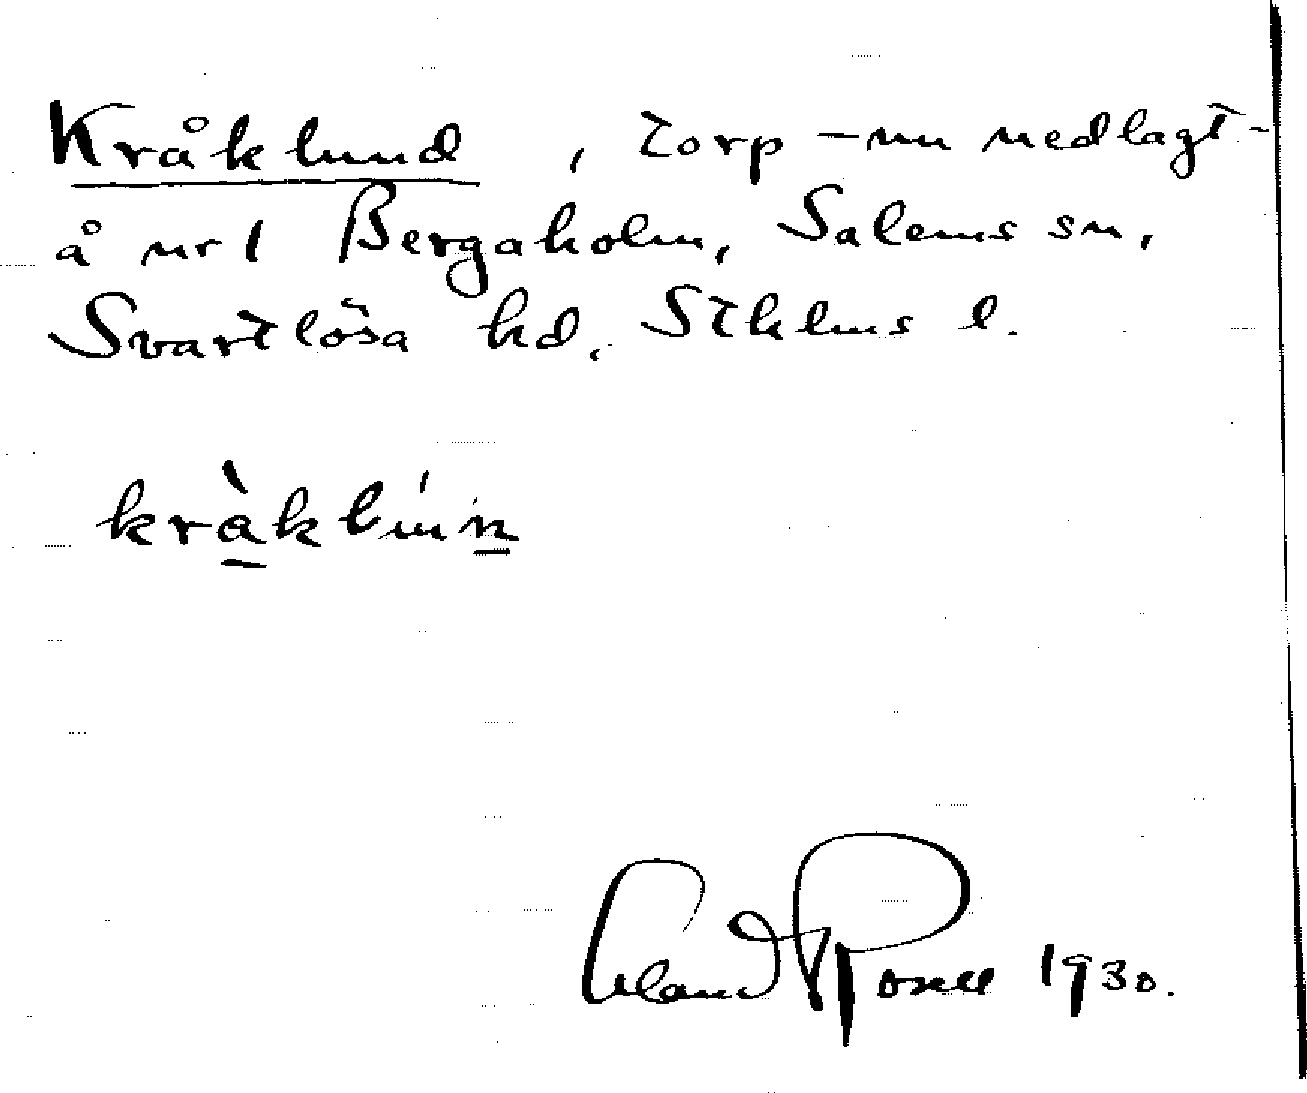 Kråklund, torp – nu nedlagt –
å nr 1 Bergaholm, Salems sn,
Svartlösa hd, Sthlms l.
Erland Rosell 1930.